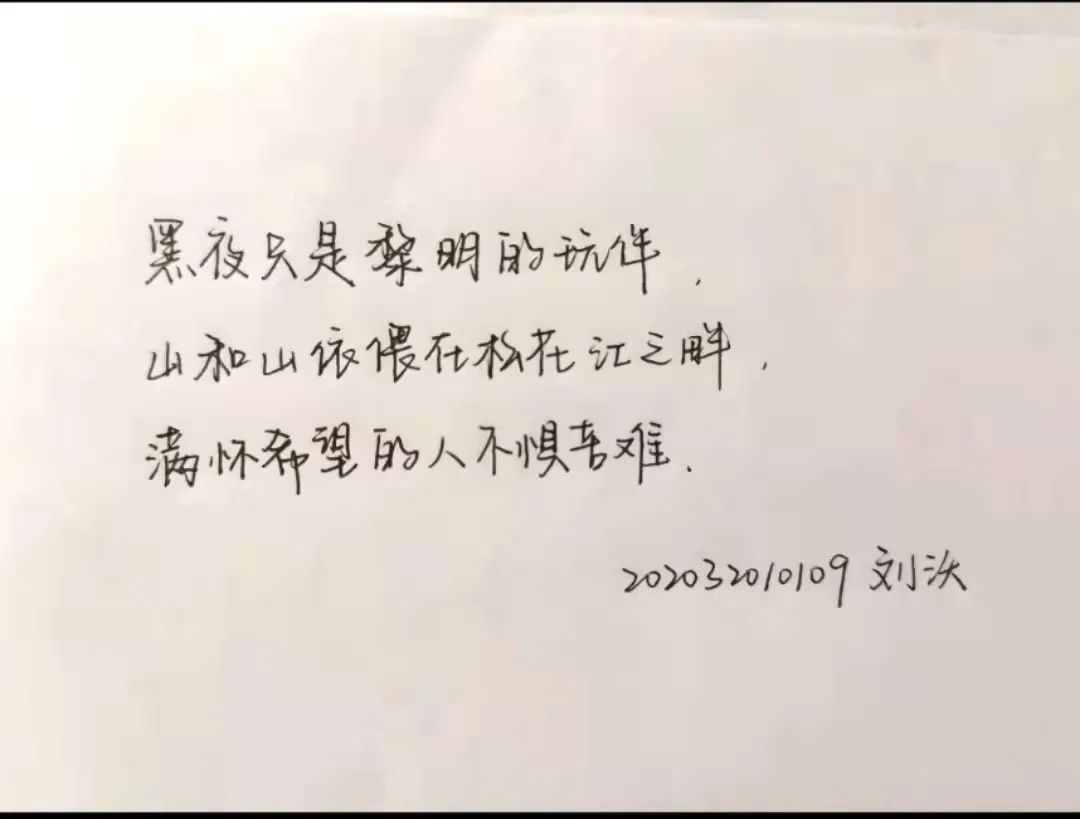 黑夜只是黎明的玩伴,
山和山依偎在松花江之畔,
满怀希望的人不惧苦难.
202032010109 刘沃